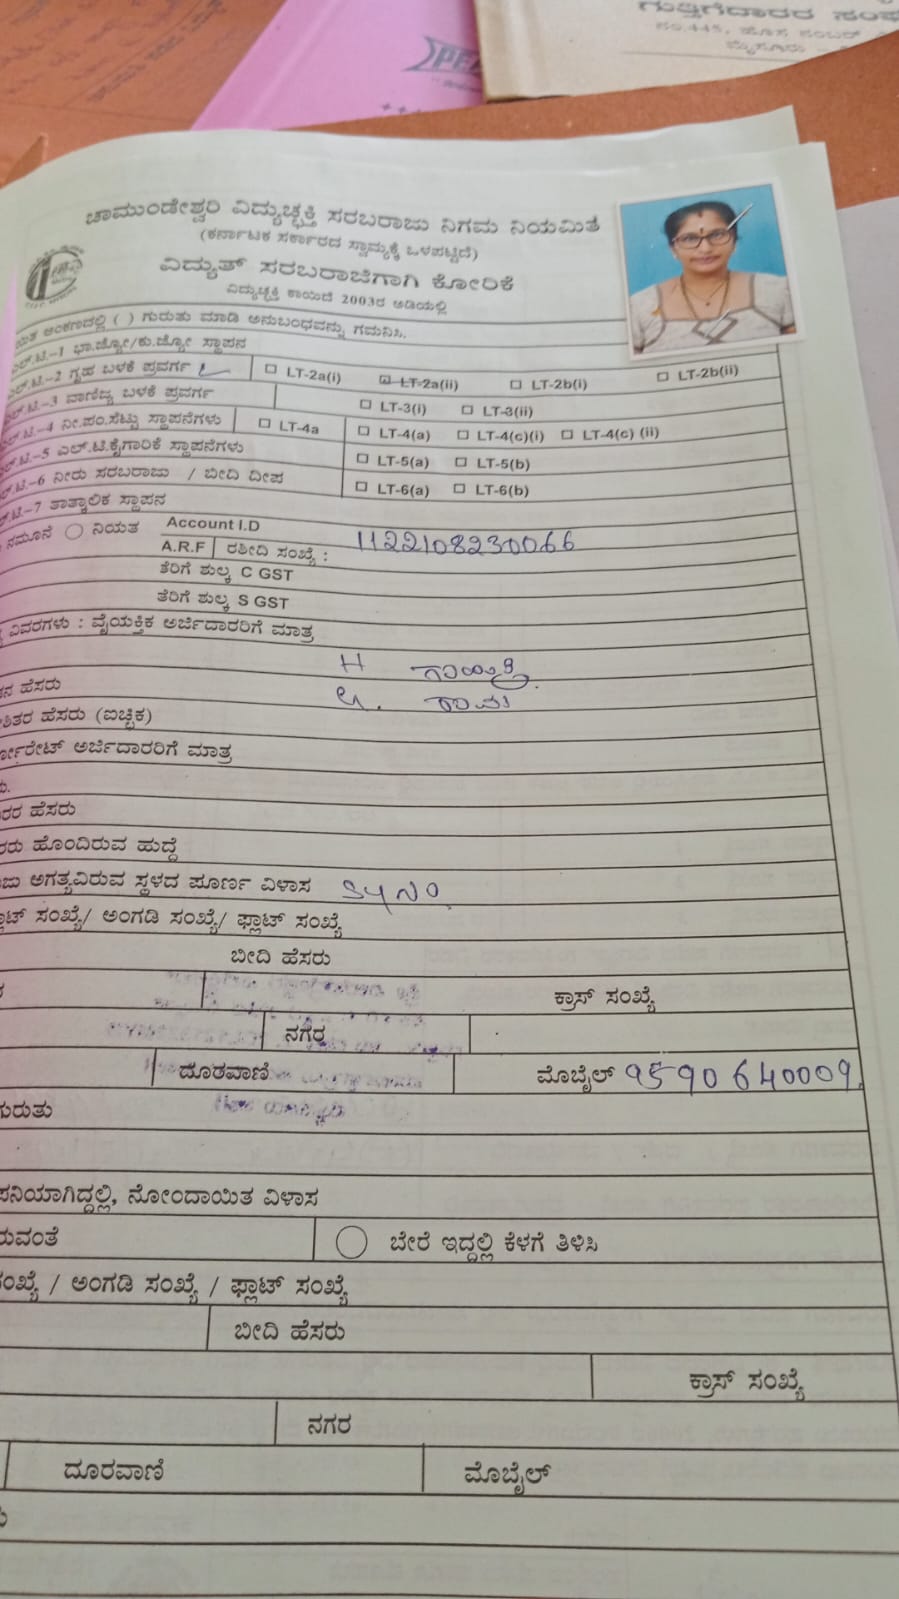 ಗುತ್ತಿಗೆದಾರರ ಸಂಘ
ನಂ.445, ಹೊಸ ನಂಬರ್
ಮೈಸೂರು
ಚಾಮುಂಡೇಶ್ವರಿ ವಿದ್ಯುಚ್ಛಕ್ತಿ ಸರಬರಾಜು ನಿಗಮ ನಿಯಮಿತ
(ಕರ್ನಾಟಕ ಸರ್ಕಾರದ ಸ್ವಾಮ್ಯಕ್ಕೆ ಒಳಪಟ್ಟಿದೆ)
ವಿದ್ಯುತ್ ಸರಬರಾಜಿಗಾಗಿ ಕೋರಿಕೆ
ವಿದ್ಯುಚ್ಛಕ್ತಿ ಕಾಯಿದೆ 2003ರ ಅಡಿಯಲ್ಲಿ
ಅಂಕಣದಲ್ಲಿ ( ) ಗುರುತು ಮಾಡಿ ಅನುಬಂಧವನ್ನು ಗಮನಿಸಿ.
ಎಲ್.ಟಿ.-1 ಭಾ.ಜ್ಯೋ/ಕು.ಜ್ಯೋ ಸ್ಥಾಪನ
ಎಲ್.ಟಿ.-2 ಗೃಹ ಬಳಕೆ ಪ್ರವರ್ಗ LT-2a(i) LT-2a(ii) LT-2b(i) LT-2b(ii)
ಎಲ್.ಟಿ.-3 ವಾಣಿಜ್ಯ ಬಳಕೆ ಪ್ರವರ್ಗ LT-3(i) LT-3(ii)
ಎಲ್.ಟಿ.-4 ನೀ.ಪಂ.ಸೆಟ್ಟು ಸ್ಥಾಪನೆಗಳು LT-4a LT-4(a) LT-4(c)(i) LT-4(c) (ii)
ಎಲ್.ಟಿ.-5 ಎಲ್.ಟಿ.ಕೈಗಾರಿಕೆ ಸ್ಥಾಪನೆಗಳು LT-5(a) LT-5(b)
ಎಲ್.ಟಿ.-6 ನೀರು ಸರಬರಾಜು / ಬೀದಿ ದೀಪ LT-6(a) LT-6(b)
ಎಲ್.ಟಿ.-7 ತಾತ್ಕಾಲಿಕ ಸ್ಥಾಪನ
ನಮೂನೆ ನಿಯತ Account I.D
A.R.F ರಶೀದಿ ಸಂಖ್ಯೆ : 1122108230066
ತೆರಿಗೆ ಶುಲ್ಕ C GST
ತೆರಿಗೆ ಶುಲ್ಕ S GST
ವಿವರಗಳು : ವೈಯಕ್ತಿಕ ಅರ್ಜಿದಾರರಿಗೆ ಮಾತ್ರ
H ಗಾಯತ್ರಿ.
ಹೆಸರು ರಾಮ
ಹೆಸರು (ಐಚ್ಛಿಕ)
ಅರ್ಜಿದಾರರಿಗೆ ಮಾತ್ರ
ಹೆಸರು
ಹೊಂದಿರುವ ಹುದ್ದೆ
ಅಗತ್ಯವಿರುವ ಸ್ಥಳದ ಪೂರ್ಣ ವಿಳಾಸ Sy NO.
ಸಂಖ್ಯೆ/ ಅಂಗಡಿ ಸಂಖ್ಯೆ/ ಫ್ಲಾಟ್ ಸಂಖ್ಯೆ
ಬೀದಿ ಹೆಸರು
ಕ್ರಾಸ್ ಸಂಖ್ಯೆ
ನಗರ
ದೂರವಾಣಿ ಮೊಬೈಲ್ 9590640009.
ಗುರುತು
ನೋಂದಾಯಿತ ವಿಳಾಸ
ಬೇರೆ ಇದ್ದಲ್ಲಿ ಕೆಳಗೆ ತಿಳಿಸಿ
/ ಅಂಗಡಿ ಸಂಖ್ಯೆ / ಫ್ಲಾಟ್ ಸಂಖ್ಯೆ
ಬೀದಿ ಹೆಸರು
ಕ್ರಾಸ್ ಸಂಖ್ಯೆ
ನಗರ
ದೂರವಾಣಿ ಮೊಬೈಲ್